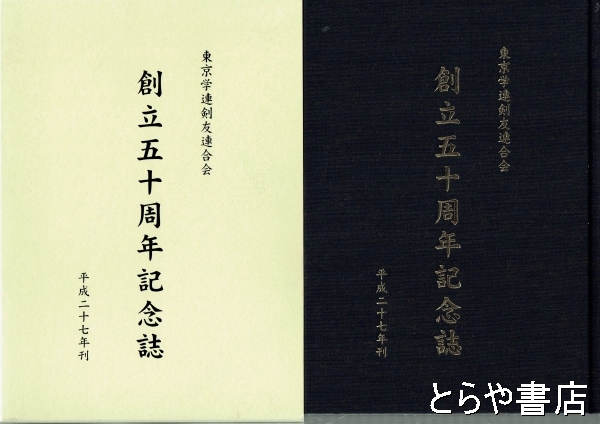 東京学連剣友連合会
創立五十周年記念誌
平成二十七年刊
東京学連剣友連合会
創立五十周年記念誌
平成二十七年刊
とらや書店